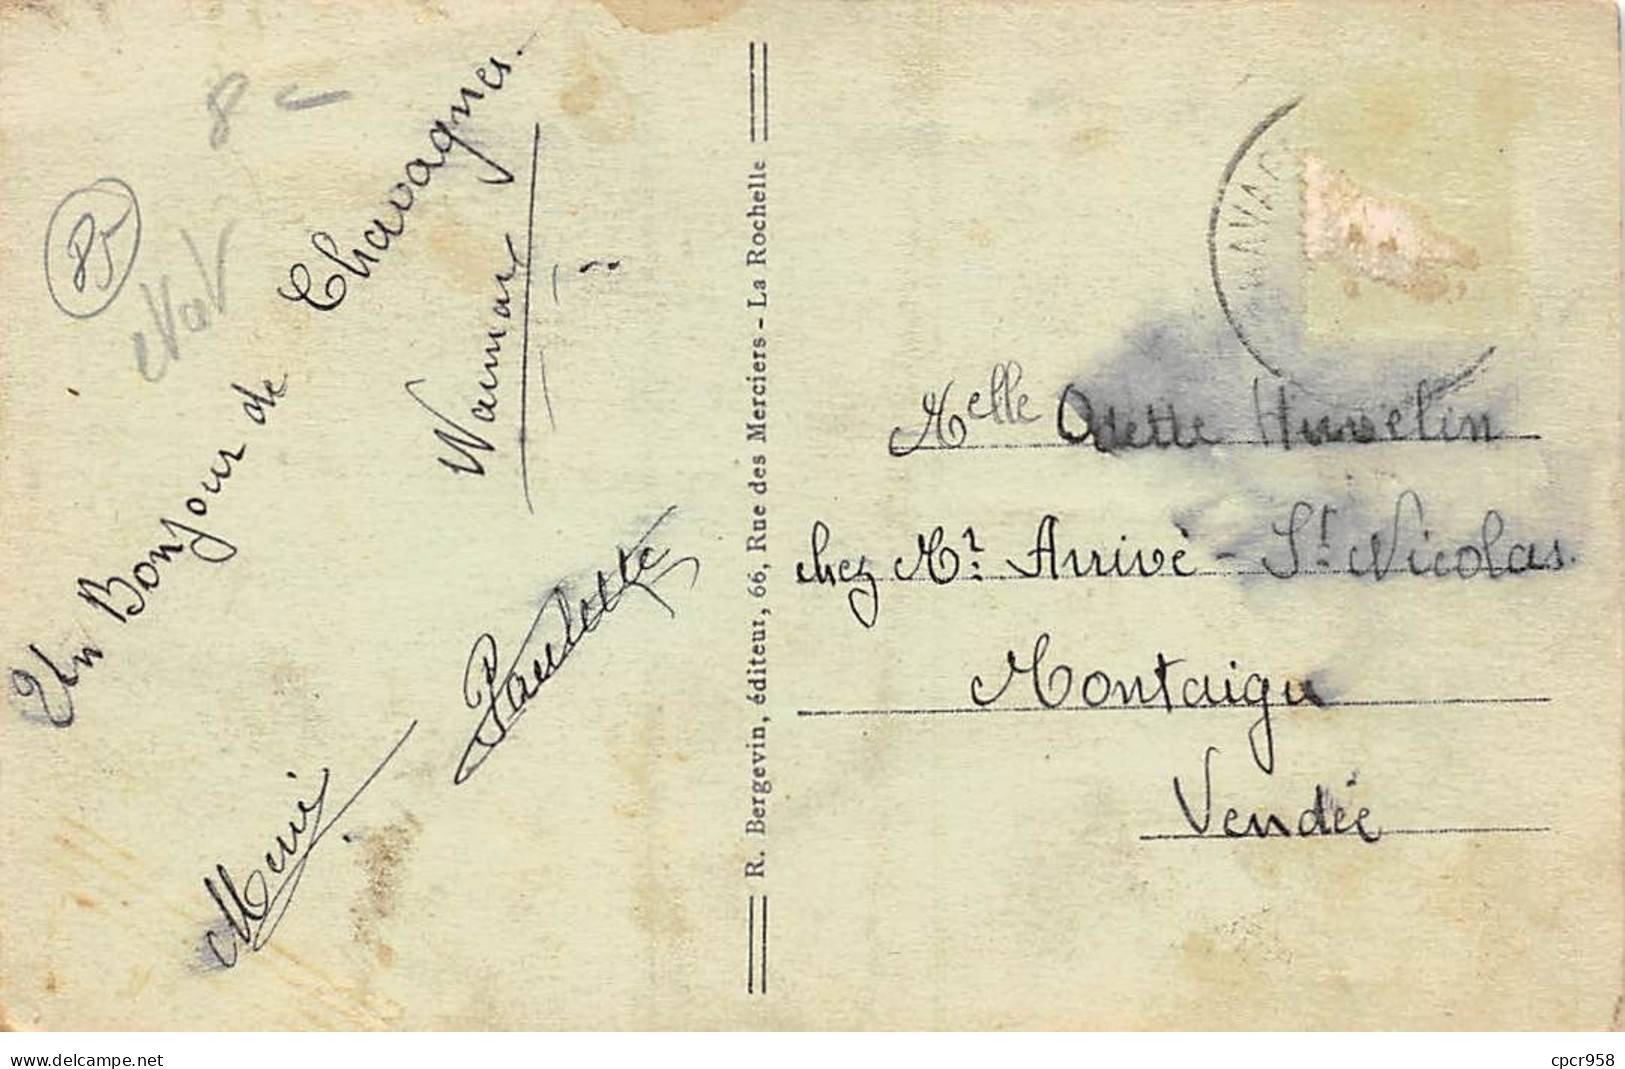 8 -
85
Un Bonjour de Chavagnes.
Paulette
R. Bergevin, éditeur, 66, Rue des Merciers - La Rochelle
HAVAG
Melle Odette Huvelin
chez Mr. Arrivé - St. Nicolas.
Montaigu
Vendée
www.delcampe.net
cpcr958